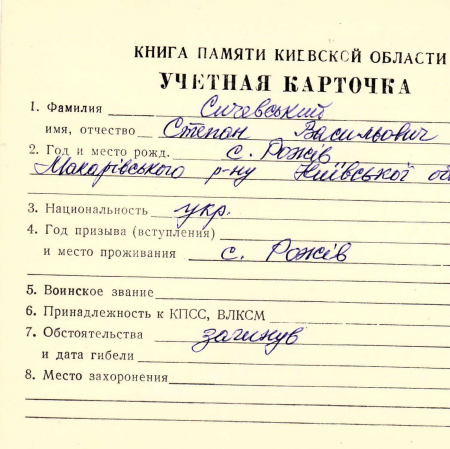 КНИГА ПАМЯТИ КИЕВСКОЙ ОБЛАСТИ
УЧЕТНАЯ КАРТОЧКА
1. Фамилия Сичевський
имя, отчество Степан Васильович
2. Год и место рожд. с. Рожів
Макарівського р-ну Київської об
3. Национальность укр.
4. Год призыва (вступления)
и место проживания с. Рожів
5. Воинское звание
6. Принадлежность к КПСС, ВЛКСМ
7. Обстоятельства загинув
и дата гибели
8. Место захоронения